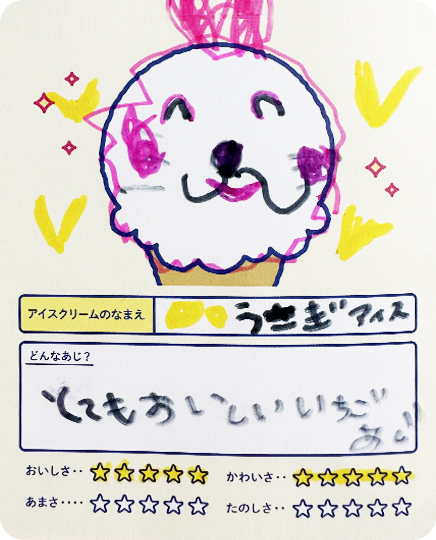 アイスクリームのなまえ うさぎアイス
どんなあじ?
とてもおいしいいちご
あじ
おいしさ‥ ☆☆☆☆☆ かわいさ‥ ☆☆☆☆☆
あまさ‥‥ ☆☆☆☆☆ たのしさ‥ ☆☆☆☆☆